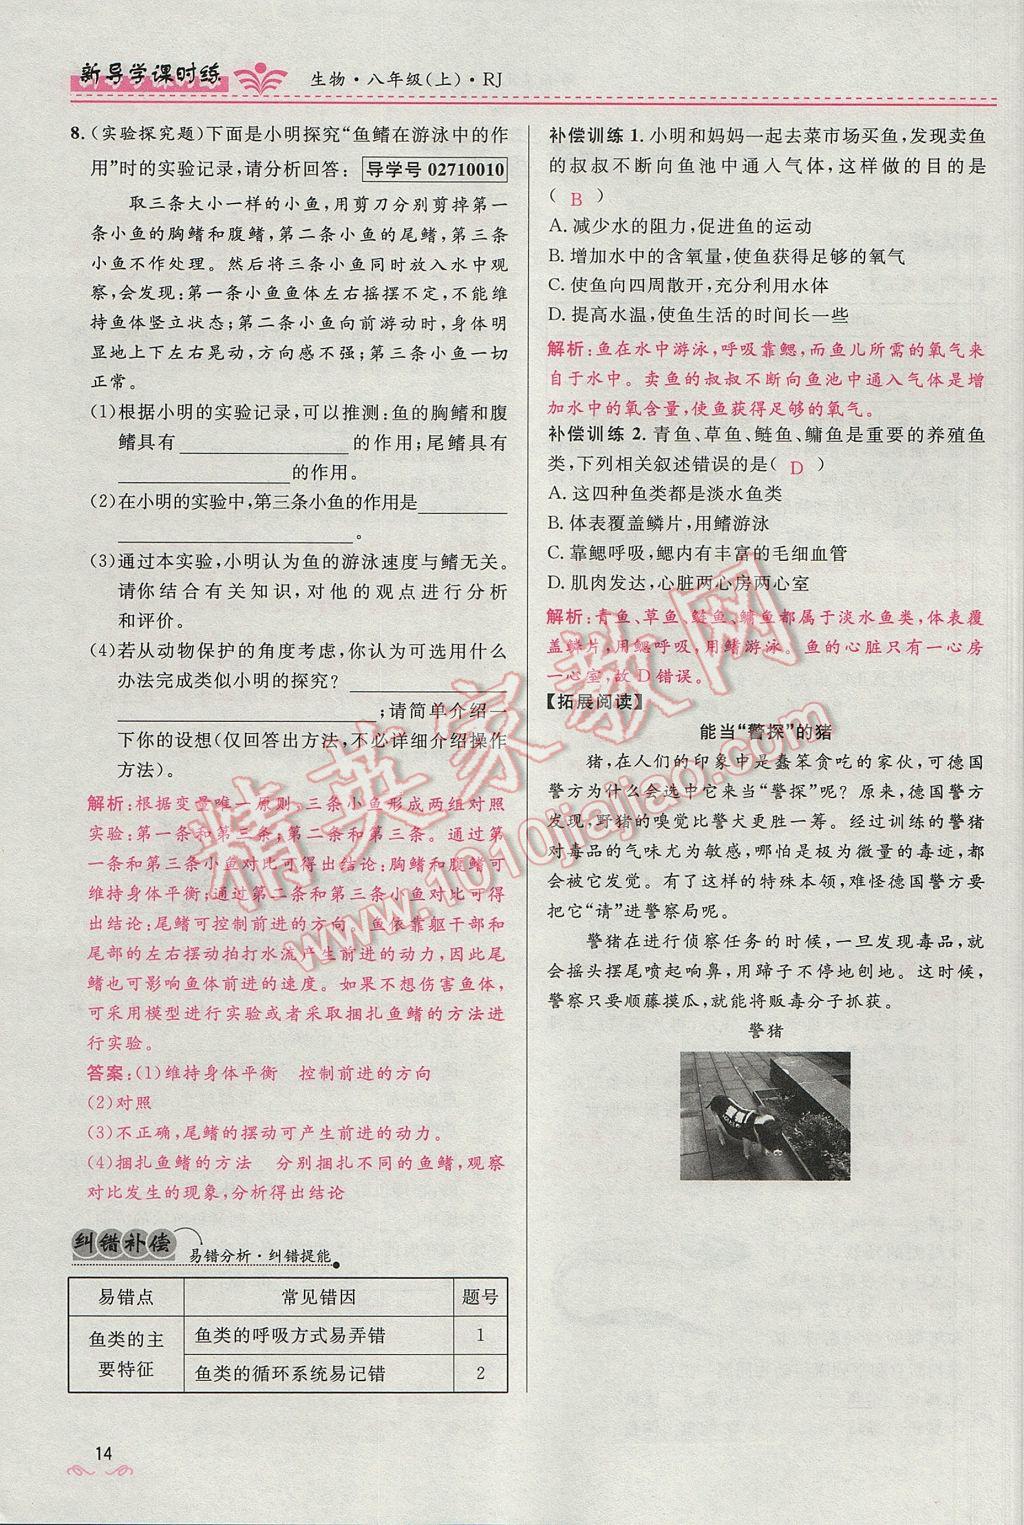 新导学课时练
生物·八年级(上)·RJ
8.(实验探究题)下面是小明探究“鱼鳍在游泳中的作
用”时的实验记录,请分析回答: 导学号 02710010
取三条大小一样的小鱼,用剪刀分别剪掉第一
条小鱼的胸鳍和腹鳍,第二条小鱼的尾鳍,第三条
小鱼不作处理。然后将三条小鱼同时放入水中观
察,会发现:第一条小鱼鱼体左右摇摆不定,不能维
持鱼体竖立状态;第二条小鱼向前游动时,身体明
显地上下左右晃动,方向感不强;第三条小鱼一切
正常。
(1)根据小明的实验记录,可以推测:鱼的胸鳍和腹
鳍具有________的作用;尾鳍具有
________的作用。
(2)在小明的实验中,第三条小鱼的作用是________
________。
(3)通过本实验,小明认为鱼的游泳速度与鳍无关。
请你结合有关知识,对他的观点进行分析
和评价。
(4)若从动物保护的角度考虑,你认为可选用什么
办法完成类似小明的探究?________
________;请简单介绍一
下你的设想(仅回答出方法,不必详细介绍操作
方法)。
解析:根据变量唯一原则,三条小鱼形成两组对照
实验:第一条和第三条;第二条和第三条。通过第
一条和第三条小鱼对比可得出结论:胸鳍和腹鳍可
维持身体平衡;通过第二条和第三条小鱼对比可得
出结论:尾鳍可控制前进的方向。鱼依靠躯干部和
尾部的左右摆动拍打水流产生前进的动力,因此尾
鳍也可影响鱼体前进的速度。如果不想伤害鱼体,
可采用模型进行实验或者采取捆扎鱼鳍的方法进
行实验。
答案:(1)维持身体平衡 控制前进的方向
(2)对照
(3)不正确,尾鳍的摆动可产生前进的动力。
(4)捆扎鱼鳍的方法 分别捆扎不同的鱼鳍,观察
对比发生的现象,分析得出结论
纠错补偿
易错分析·纠错提能
易错点 常见错因 题号
鱼类的主要特征 鱼类的呼吸方式易弄错 1
鱼类的循环系统易记错 2
14
补偿训练 1. 小明和妈妈一起去菜市场买鱼,发现卖鱼
的叔叔不断向鱼池中通入气体,这样做的目的是
( B )
A. 减少水的阻力,促进鱼的运动
B. 增加水中的含氧量,使鱼获得足够的氧气
C. 使鱼向四周散开,充分利用水体
D. 提高水温,使鱼生活的时间长一些
解析:鱼在水中游泳,呼吸靠鳃,而鱼儿所需的氧气来
自于水中。卖鱼的叔叔不断向鱼池中通入气体是增
加水中的氧含量,使鱼获得足够的氧气。
补偿训练 2. 青鱼、草鱼、鲢鱼、鳙鱼是重要的养殖鱼
类,下列相关叙述错误的是( D )
A. 这四种鱼类都是淡水鱼类
B. 体表覆盖鳞片,用鳍游泳
C. 靠鳃呼吸,鳃内有丰富的毛细血管
D. 肌肉发达,心脏两心房两心室
解析:青鱼、草鱼、鲢鱼、鳙鱼都属于淡水鱼类,体表覆
盖鳞片,用鳃呼吸,用鳍游泳。鱼的心脏只有一心房
一心室,故 D 错误。
【拓展阅读】
能当“警探”的猪
猪,在人们的印象中是蠢笨贪吃的家伙,可德国
警方为什么会选中它来当“警探”呢?原来,德国警方
发现,野猪的嗅觉比警犬更胜一筹。经过训练的警猪
对毒品的气味尤为敏感,哪怕是极为微量的毒迹,都
会被它发觉。有了这样的特殊本领,难怪德国警方要
把它“请”进警察局呢。
警猪在进行侦察任务的时候,一旦发现毒品,就
会摇头摆尾喷起响鼻,用蹄子不停地刨地。这时候,
警察只要顺藤摸瓜,就能将贩毒分子抓获。
警猪
精英家教网
www.1010jiajiao.com